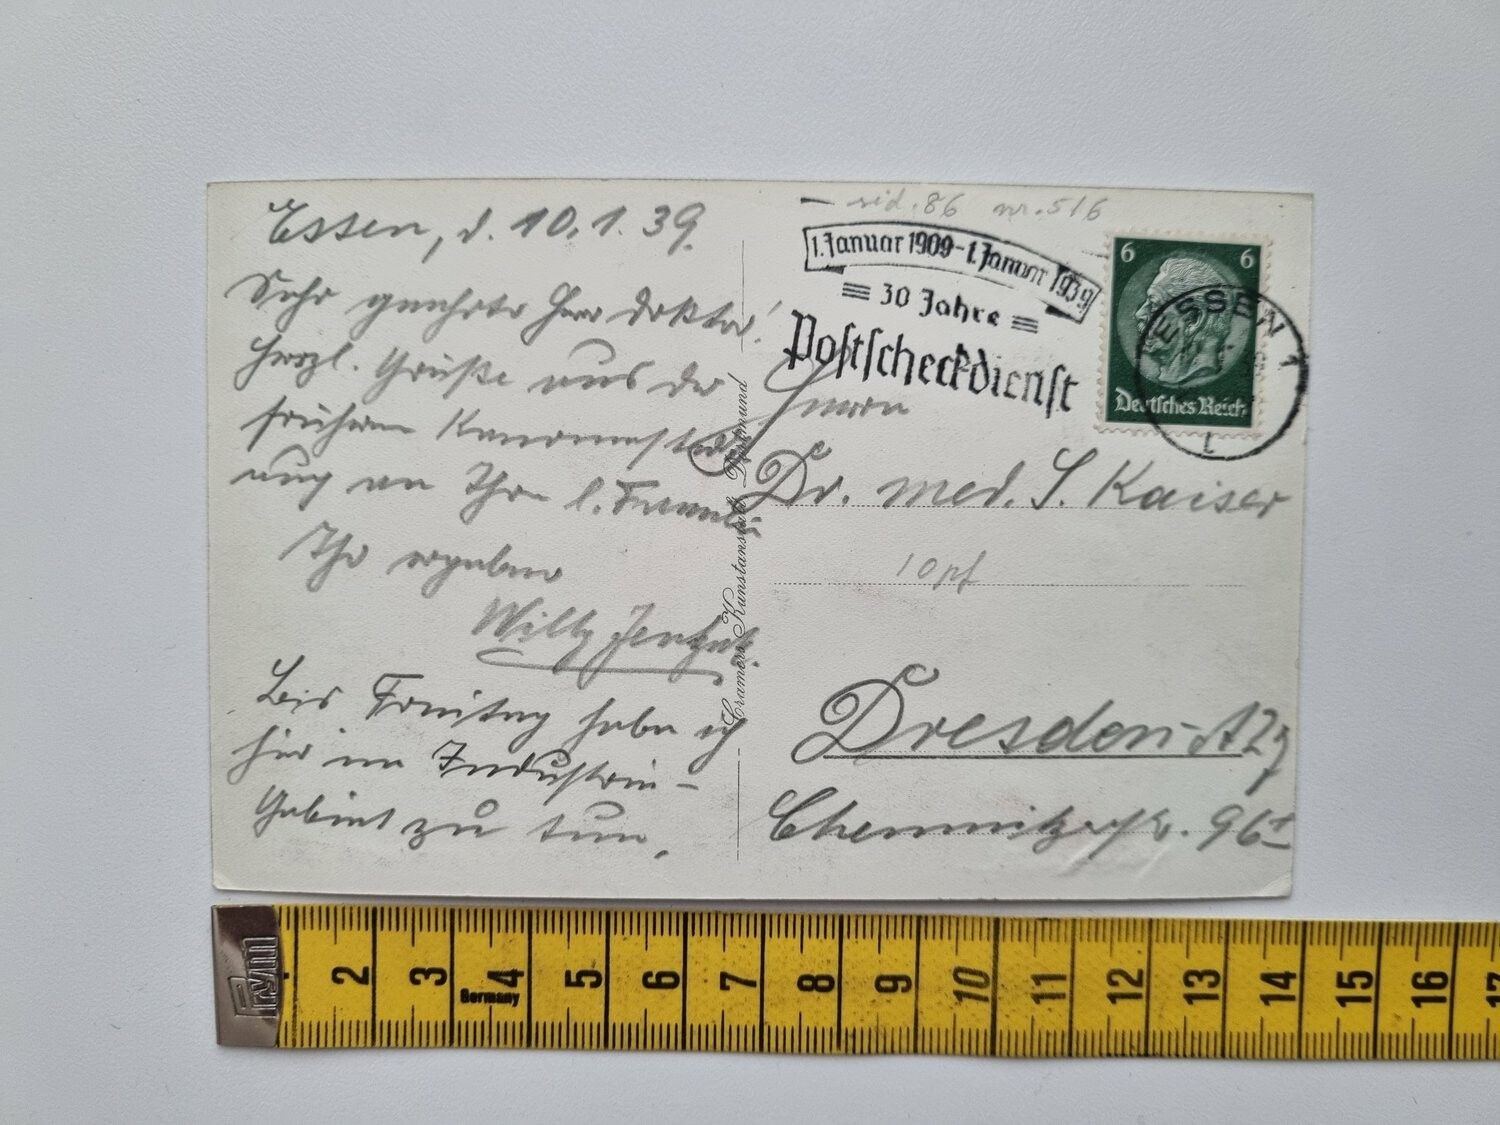 Essen, d. 10.1.39.
Sehr geehrter Herr Doktor!
Herzl. Grüße aus der
früheren Kanonenstadt
auch an Ihre l. Familie
Ihr ergebener
Willy
Bis Freitag habe ich
hier im Industrie-
Gebiet zu tun.
Cramers Kunstanstalt, Dortmund
rid. 86 nr. 516
1. Januar 1909-1. Januar 1939
30 Jahre
Postscheckdienst
6 6
Deutsches Reich
ESSEN 1
Herrn
Dr. med. S. Kaiser
10 pf
Dresden-A 27
Chemnitzerstr. 96
Prym
2 3 4 5 6 7 8 9 10 11 12 13 14 15 16 17
Germany